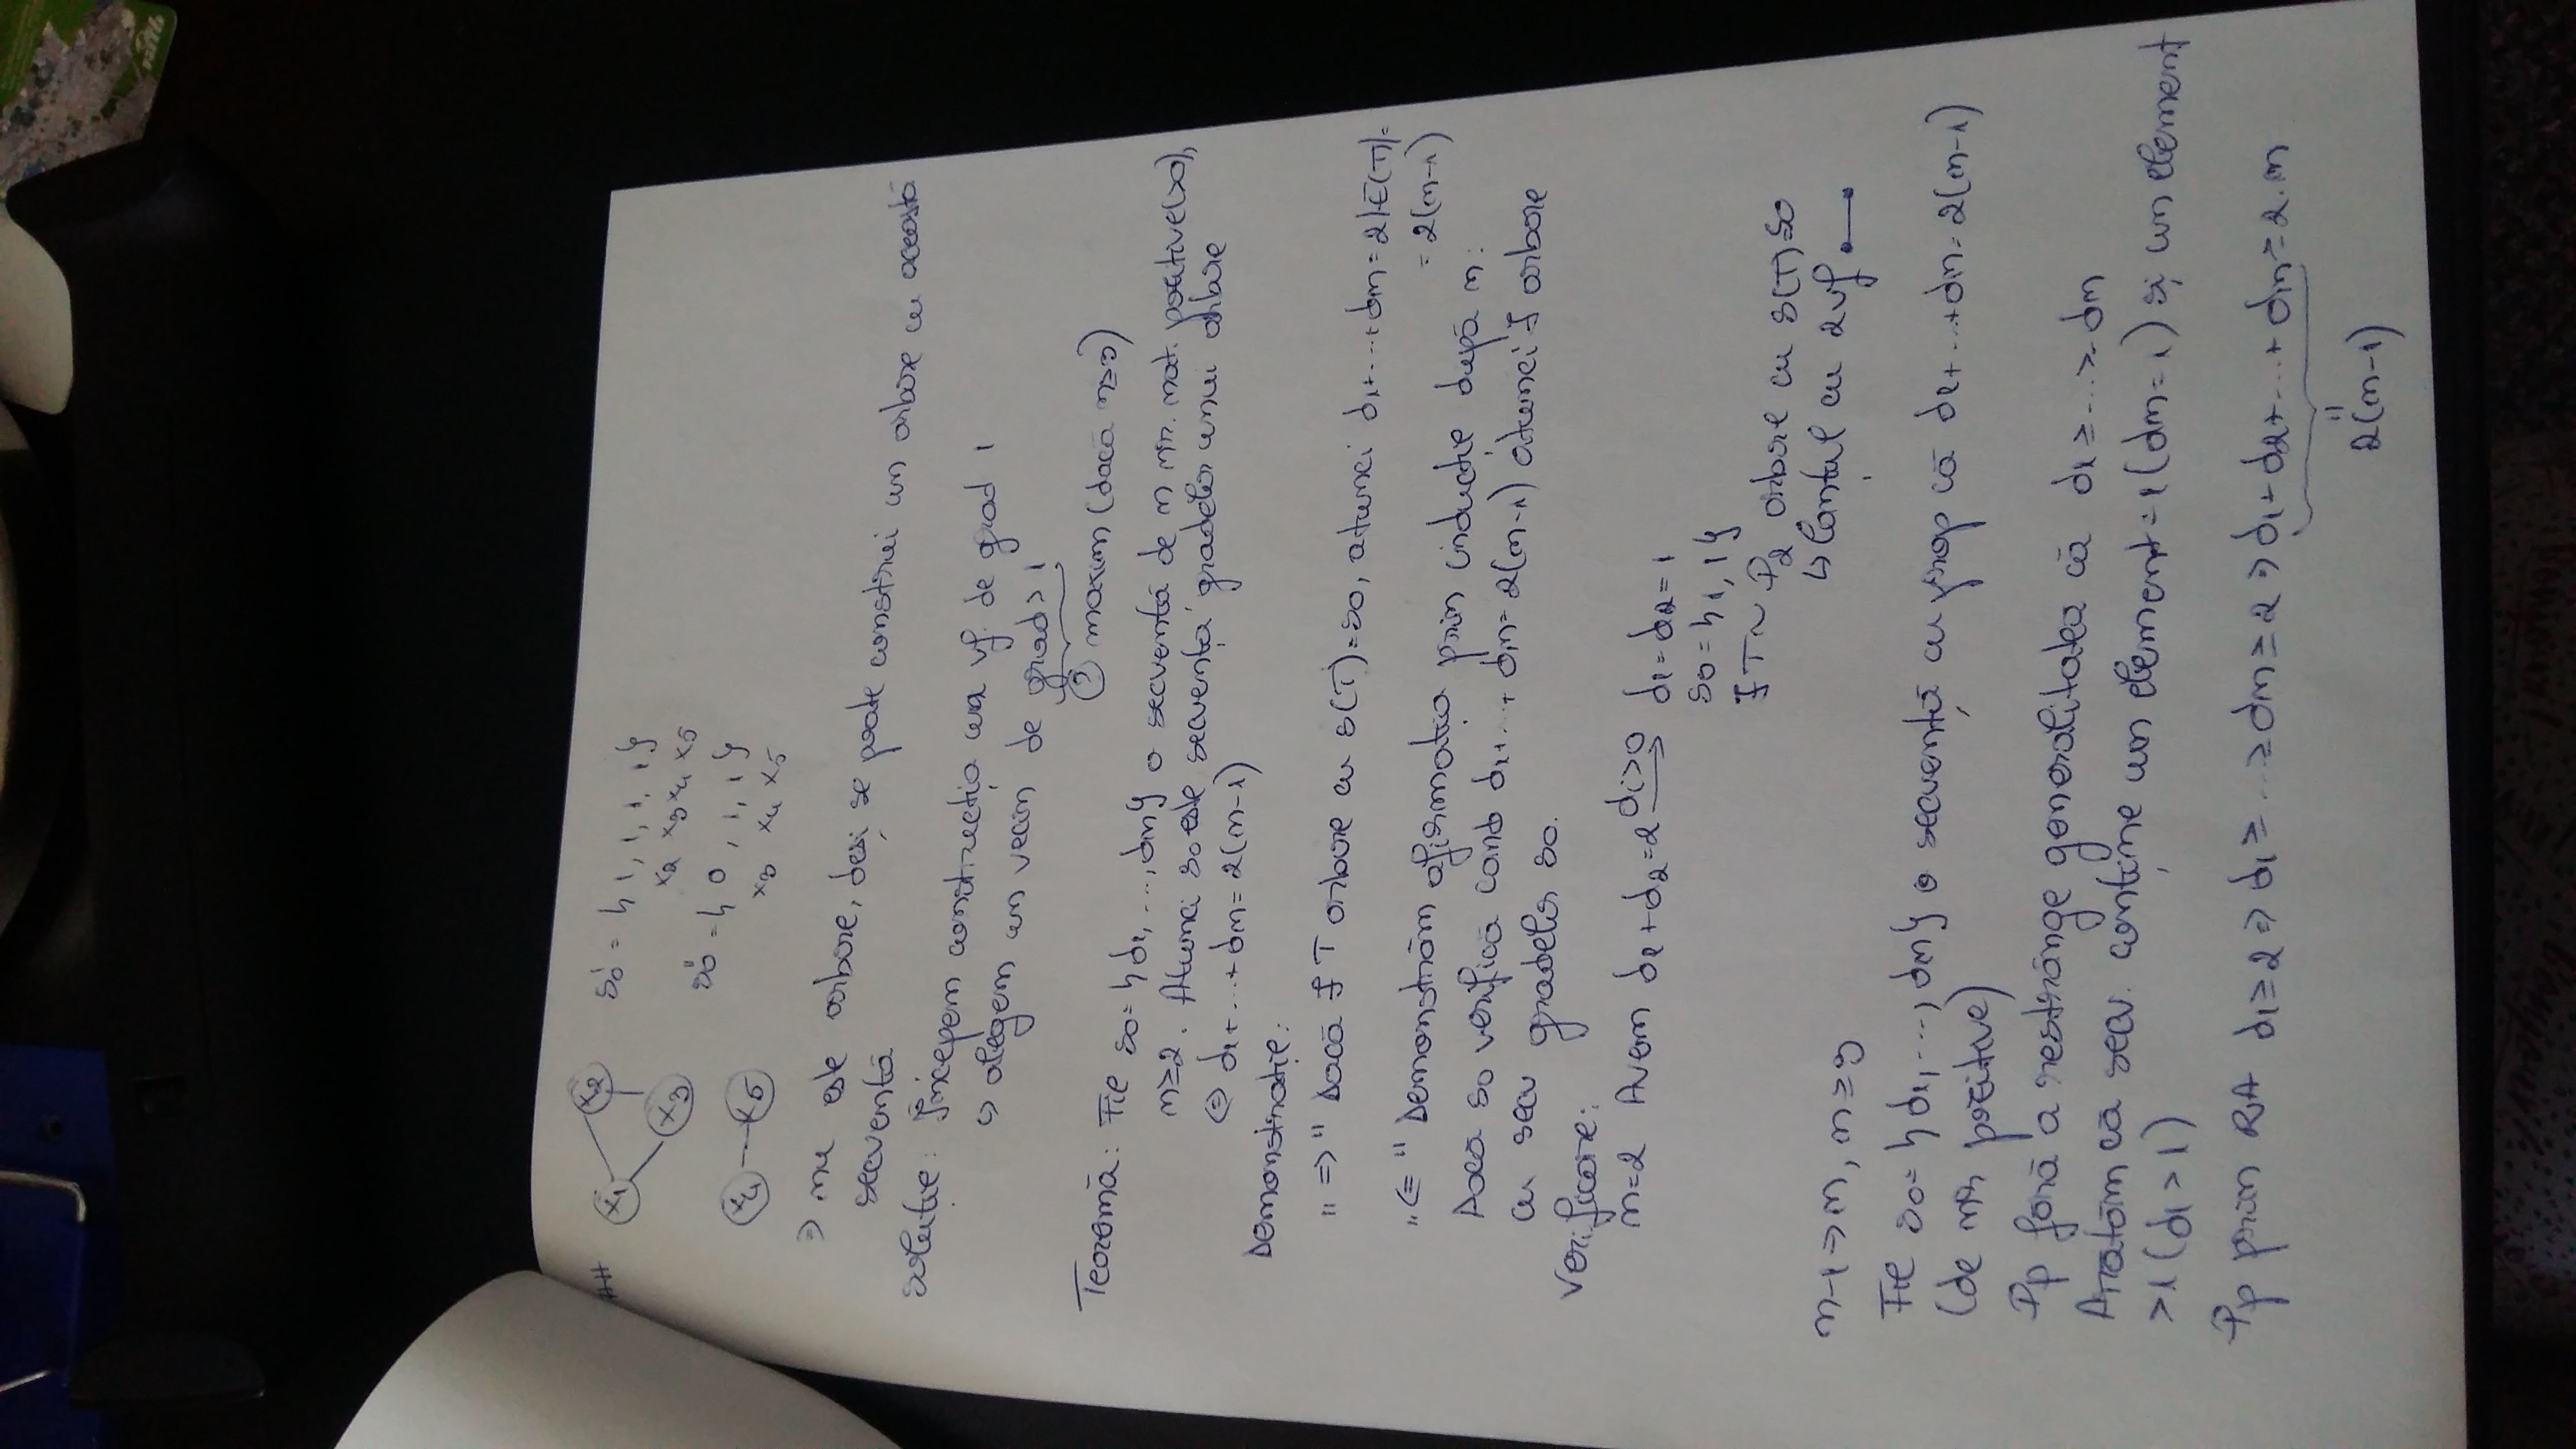 x1 x2 s0' = {1, 1, 1, 1}
x3 x2 x3 x4 x5
s0'' = {0, 1, 1}
x4 x5 x3 x4 x5
=> nu este arbore, deși se poate construi un arbore cu această
secventă
Soluție: Începem construcția cu un vf. de grad 1
↳ alegem un vecin de grad > 1
maxim (dacă n≥3)
Teoremă: Fie s0 = {d1, ..., dn} o secventă de n nr. nat. pozitive (>0),
n≥2. Atunci s0 este secvența gradelor unui arbore
<=> d1+...+dn = 2(n-1)
Demonstrație:
„=>" Dacă ∃ T arbore cu s(T)=s0, atunci d1+...+dn = 2|E(T)| =
= 2(n-1)
„<=" Demonstrăm afirmația prin inducție după n:
Dacă s0 verifică cond d1+...+dn = 2(n-1) atunci ∃ arbore
cu secv gradelor s0.
Verificare:
n=2 Avem d1+d2=2 di>0 → d1=d2=1
s0 = {1, 1}
∃ T ~ P2 arbore cu s(T)=s0
↳ lanțul cu 2 vf
n-1 => n, n≥3
Fie s0 = {d1, ..., dn} o secvență cu prop că d1+...+dn = 2(n-1)
(de nr pozitive)
Pp fără a restrânge generalitatea că d1 ≥ ... ≥ dn
Arătăm că secv. conține un element = 1 (dn = 1) și un element
>1 (d1 > 1)
Pp prin RA d1≥2 => d1 ≥ ... ≥ dn ≥ 2 => d1+d2+...+dn ≥ 2·n
"
2(n-1)